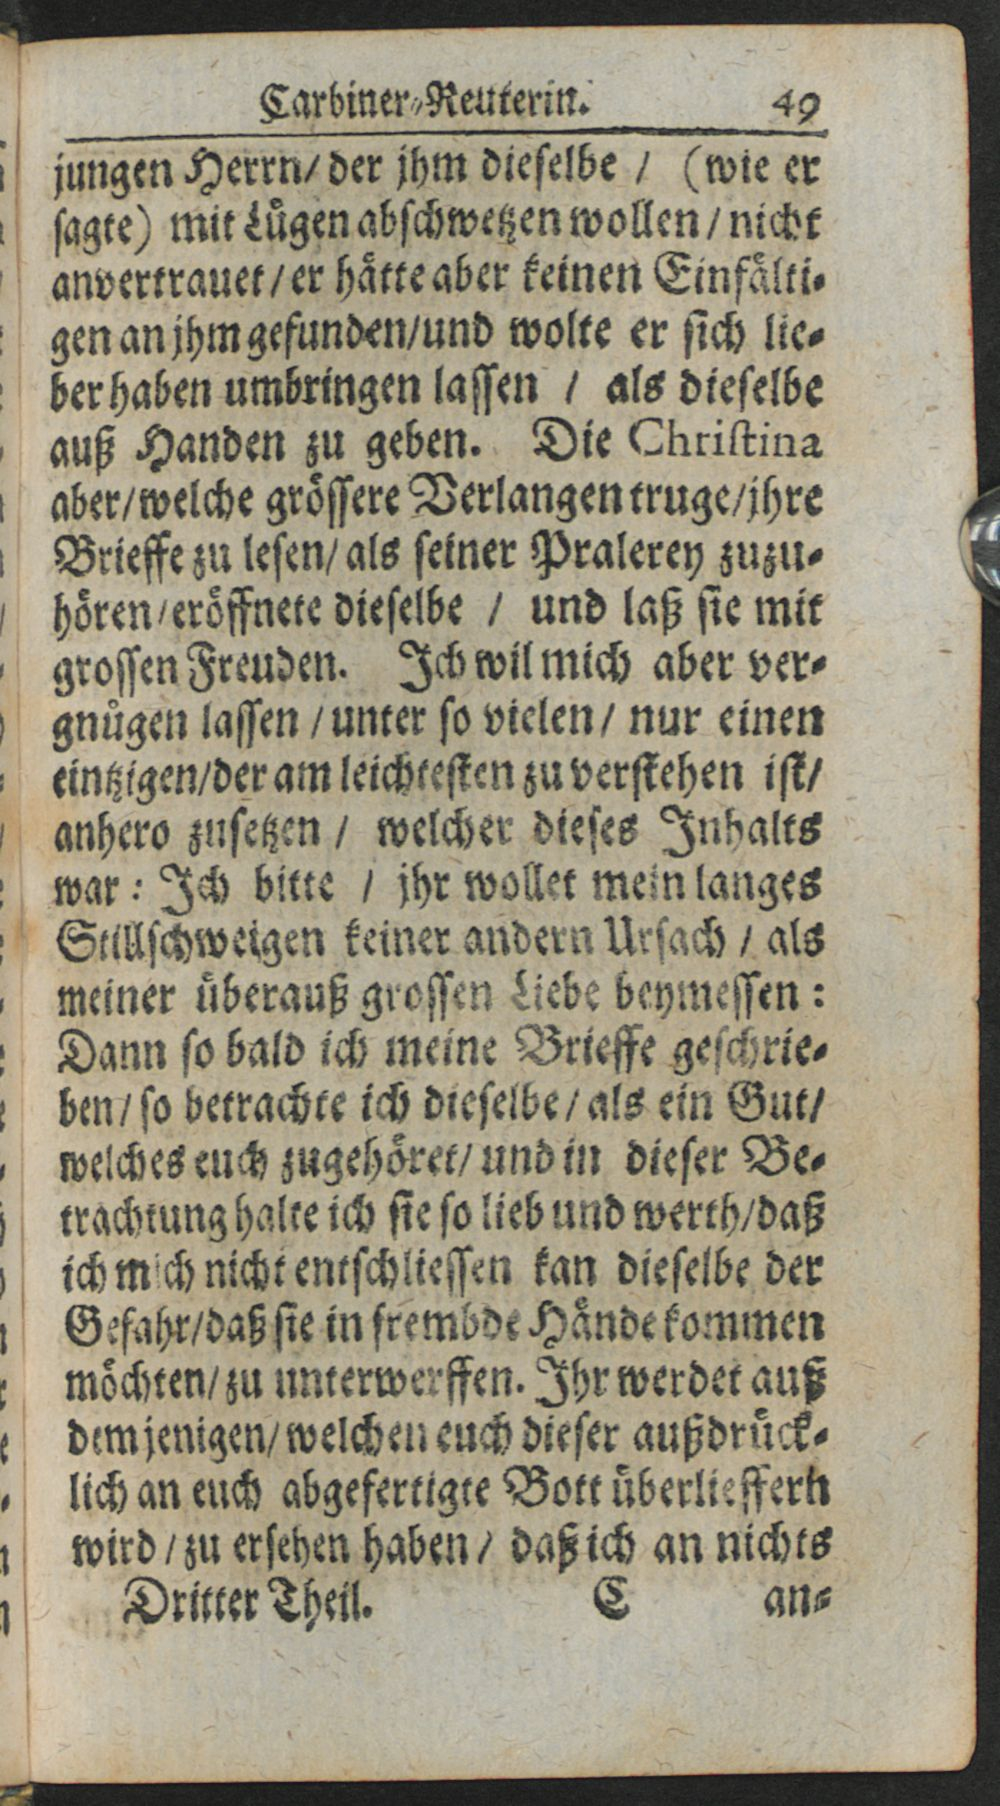 Carbiner-Reuterin. 49
jungen Herrn/ der jhm dieselbe / (wie er
sagte) mit Lügen abschwetzen wollen / nicht
anvertrauet / er hätte aber keinen Einfälti-
gen an jhm gefunden/ und wolte er sich lie-
ber haben umbringen lassen / als dieselbe
auß Handen zu geben. Die Christina
aber/ welche grössere Verlangen truge/ jhre
Brieffe zu lesen/ als seiner Pralerey zuzu-
hören/ eröffnete dieselbe / und laß sie mit
grossen Freuden. Ich wil mich aber ver-
gnügen lassen / unter so vielen/ nur einen
eintzigen/ der am leichtesten zu verstehen ist/
anhero zusetzen / welcher dieses Inhalts
war : Ich bitte / jhr wollet mein langes
Stillschweigen keiner andern Ursach / als
meiner überauß grossen Liebe beymessen :
Dann so bald ich meine Brieffe geschrie-
ben/ so betrachte ich dieselbe / als ein Gut/
welches euch zugehöret/ und in dieser Be-
trachtung halte ich sie so lieb und werth/ daß
ich mich nicht entschliessen kan dieselbe der
Gefahr/ daß sie in frembde Hände kommen
möchten/ zu unterwerffen. Ihr werdet auß
demjenigen/ welchen euch dieser außdrück-
lich an euch abgefertigte Bott überlieffern
wird / zu ersehen haben / daß ich an nichts
Dritter Theil. C an-